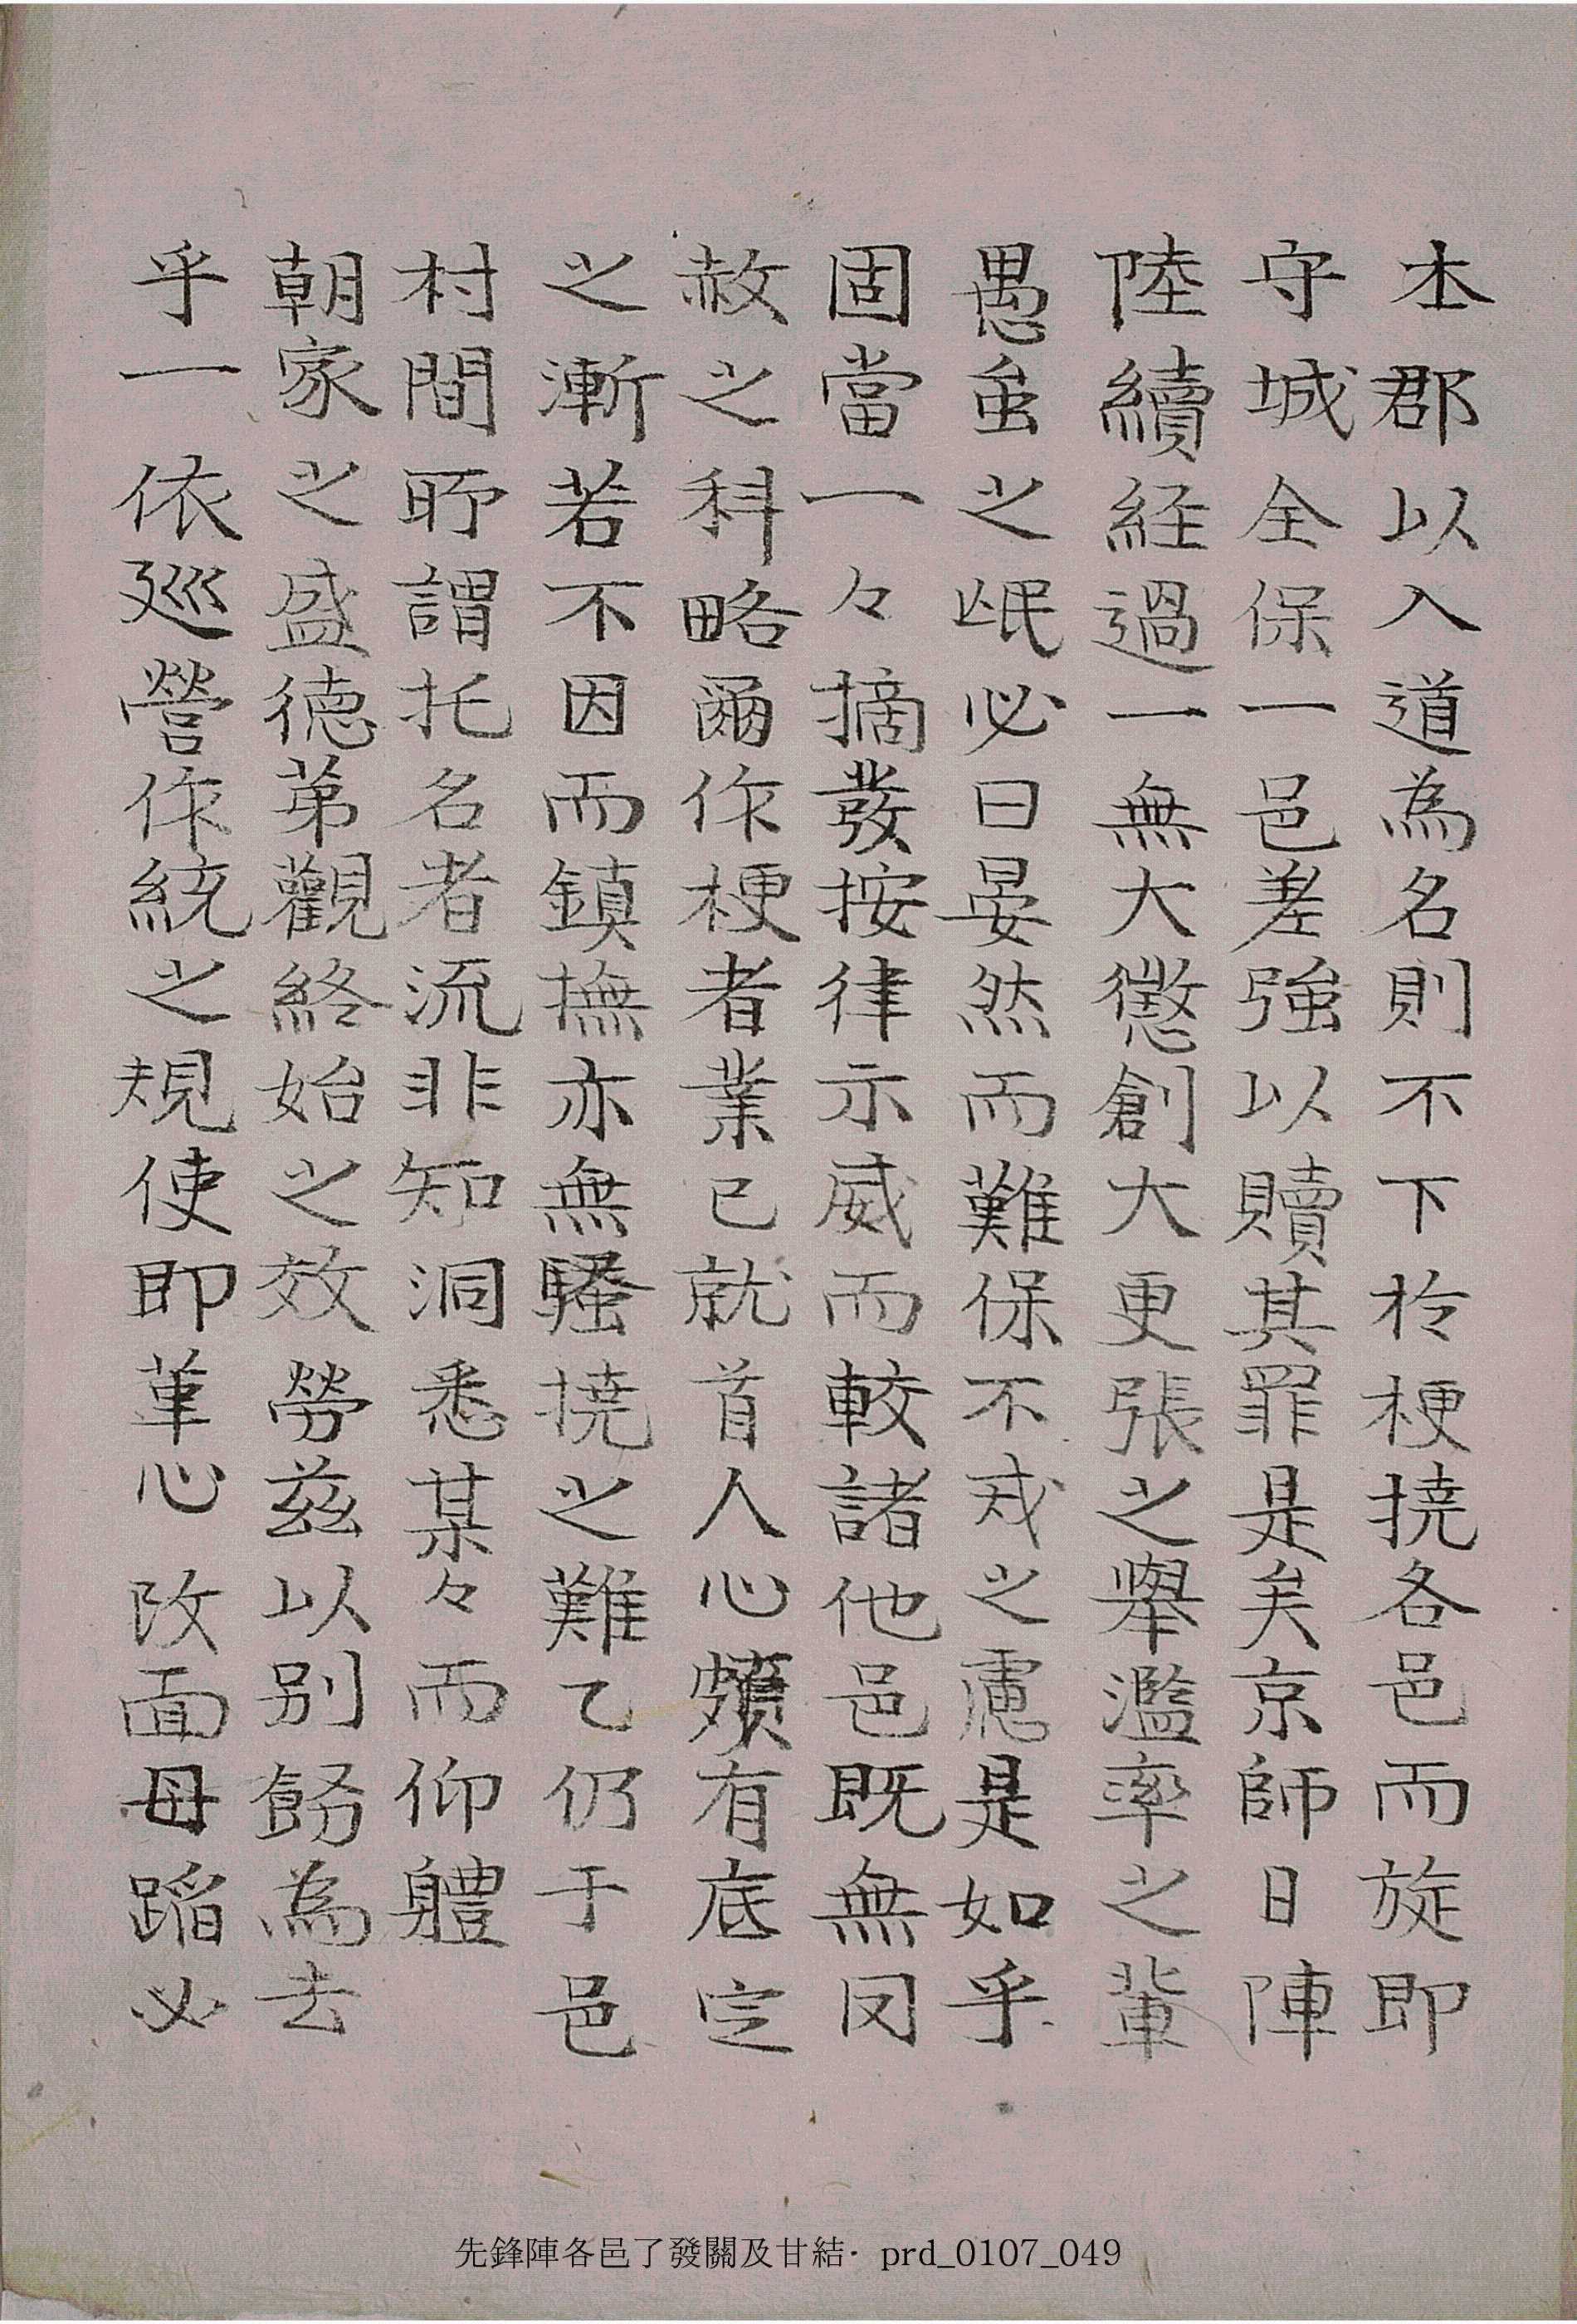 本郡以入道為名則不下於梗撓各邑而旋即
守城全保一邑差強以贖其罪是矣京師日陣
陸續経過一無大懲創大更張之擧濫率之輩
愚蚩之氓必曰晏然而難保不戒之慮是如乎
固當一々摘發按律示威而較諸他邑既無罔
赦之科略爾作梗者業已就首人心頗有底定
之漸若不因而鎮撫亦無騷撓之難乙仍于邑
村間所謂托名者流非知洞悉某々而仰軆
朝家之盛德第觀終始之效勞玆以別飭為去
乎一依廵營作統之規使即革心改面毋蹈必
先鋒陣各邑了發關及甘結· prd_0107_049